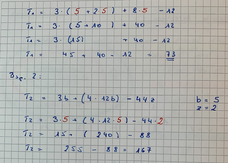 T₁ = 3·(5 + 2·5) + 8·5 − 12
T₁ = 3·(5 + 10) + 40 − 12
T₁ = 3·(15) + 40 − 12
T₁ = 45 + 40 − 12 = 73
2:
T₂ = 3b + (4·12b) − 44z b = 5
z = 2
T₂ = 3·5 + (4·12·5) − 44·2
T₂ = 15 + (240) − 88
T₂ = 255 − 88 = 167